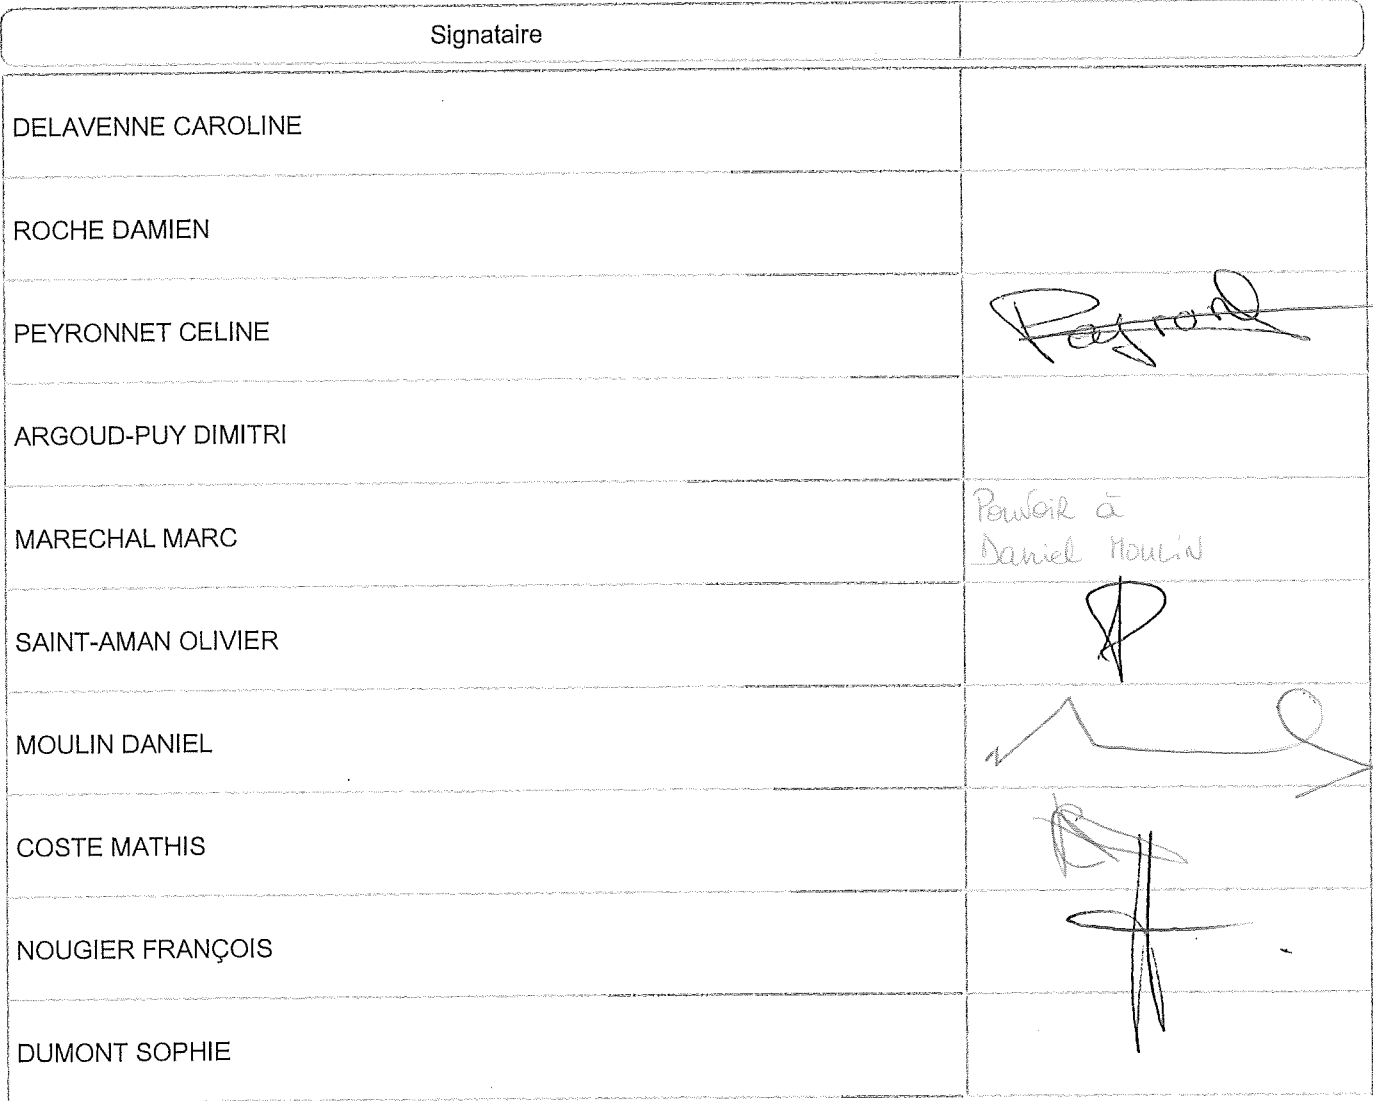 Signataire
DELAVENNE CAROLINE
ROCHE DAMIEN
PEYRONNET CELINE
ARGOUD-PUY DIMITRI
MARECHAL MARC
Pouvoir à
Daniel Moulin
SAINT-AMAN OLIVIER
MOULIN DANIEL
COSTE MATHIS
NOUGIER FRANÇOIS
DUMONT SOPHIE